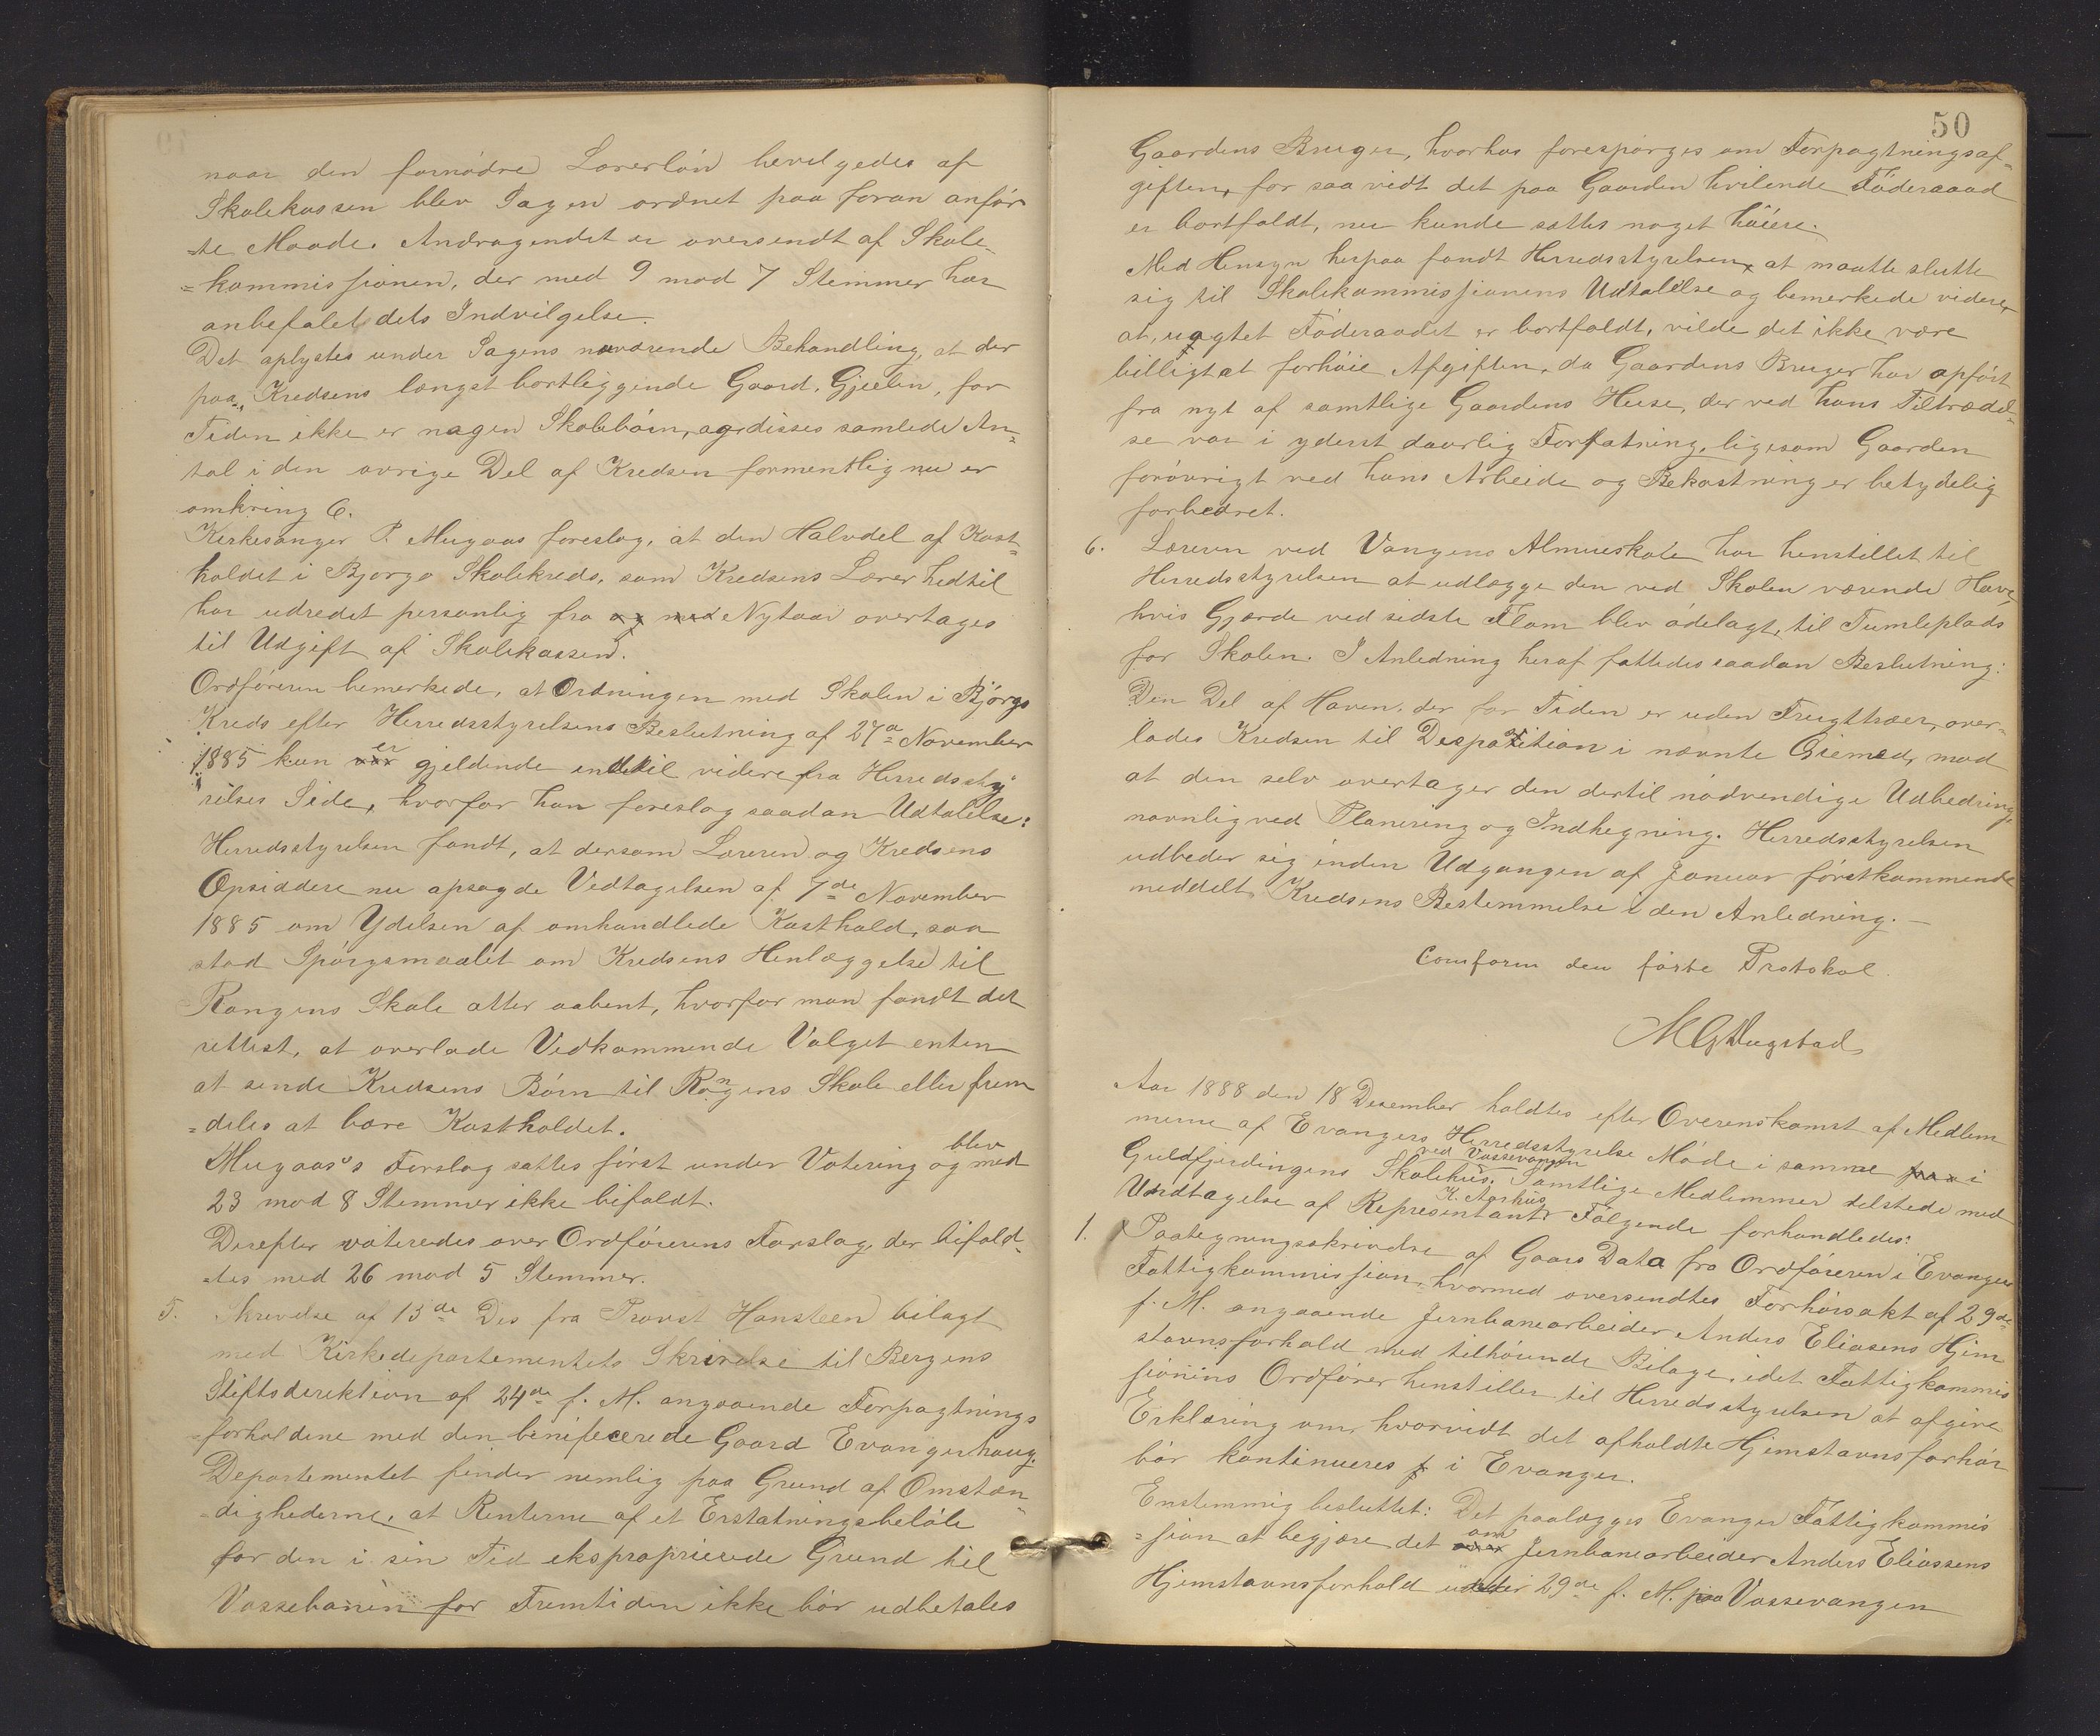 naar den fornødne Lærerløn bevilgedes af
Skolekassen blev Sagen ordnet paa foran anfør-
-te Maade. Andragendet er oversendt af Skole-
=kommissionen, der med 9 mod 7 Stemmer har
anbefalet dets Indvilgelse.
Det oplystes under Sagens nuværende Behandling, at der
paa Kredsens længst bortliggende Gaard, Gjelin, for
Tiden ikke er nogen Skolebørn, og disses samlede An-
tal i den øvrige Del af Kredsen formentlig nu er
omkring 6.
Kirkesanger P. Mugaas foreslog, at den Halvdel af Kost=
holdet i Bjørgo Skolekreds, som Kredsens Lærer hidtil
har udredet personlig fra og med Nytaar overtages
til Udgift af Skolekassen.
Ordføreren bemerkede, at Ordningen med Skolen i Bjørgo
Kreds efter Herredsstyrelsens Beslutning af 27de November
1885 kun er gjeldende indtil videre fra Herredssty-
relses Side, hvorfor han foreslog saadan Udtalelse:
Herredsstyrelsen fandt, at dersom Læreren og Kredsens
Opsiddere nu opsagde Vedtagelsen af 7de November
1885 om Ydelsen af omhandlede Kosthold, saa
stod Spørgsmaalet om Kredsens Henlæggelse til
Rongens Skole atter aabent, hvorfor man fandt det
rettest, at overlade Vedkommende Valget enten
at sende Kredsens Børn til Rongens Skole eller frem
=deles at bære Kostholdet.
Mugaas's Forslag sattes først under Votering og blev med
23 mod 8 Stemmer ikke bifaldt.
Derefter voteredes over Ordførerens Forslag, der bifald-
-tes med 26 mod 5 Stemmer.
5. Skrivelse af 13de Des fra Provst Hansteen bilagt
med Kirkedepartementets Skrivelse til Bergens
Stiftsdirektion af 24de f. M. angaaende Forpagtnings
-forholdene med den beneficerede Gaard Evangerhaug.
Departementet finder nemlig paa Grund af Omstæn-
-dighederne, at Renterne af et Erstatningsbeløb
for den i sin Tid eksproprierede Grund til
Vossebanen for Fremtiden ikke bør udbetales
50
Gaardens Bruger, hvorhos forespørges om Forpagtningsaf-
giften, for saa vidt det paa Gaarden hvilende Føderaad
er bortfaldt, nu kunde sættes noget høiere.
Med Hensyn herpaa fandt Herredsstyrelsen at maatte slutte
sig til Skolekommissionens Udtalelse og bemerkede videre,
at, uagtet Føderaadet er bortfaldt, vilde det ikke være
billigt at forhøie Afgiften, da Gaardens Bruger har opført
fra nyt af samtlige Gaardens Huse, der ved hans Tiltrædel-
se var i yderst daarlig Forfatning, ligesom Gaarden
forøvrigt ved hans Arbeide og Bekostning er betydelig
forbedret.
6. Læreren ved Vangens Almueskole har henstillet til
Herredsstyrelsen at udlægge den ved Skolen værende Have,
hvis Gjærde ved sidste Flom blev ødelagt, til Tumleplads
for Skolen. I Anledning heraf fattedes saadan Beslutning:
Den Del af Haven, der for Tiden er uden Frugttræer, over-
lades Kredsen til Disposition i nævnte Øiemed, mod
at den selv overtager den dertil nødvendige Udbedring,
navnlig ved Planering og Indhegning. Herredsstyrelsen
udbeder sig inden Udgangen af Januar førstkommende
meddelt Kredsens Bestemmelse i den Anledning.—
Comform den førte Protokol.
M G Mugstad
Aar 1888 den 18 Desember holdtes efter Overenskomst af Medlem
merne af Evangers Herredsstyrelse Møde i samme fra i
Guldfjerdingens Skolehus ved Vossevangen. Samtlige Medlemmer tilstede med
Undtagelse af Representant K. Aarhus. Følgende forhandledes:
1. Paategningsskrivelse af Gaars Data fra Ordføreren i Evanger
Fattigkommission, hvormed oversendtes Forhørsakt af 29de
f. M. angaaende Jernbanearbeider Anders Eliasens Hjem
stavnsforhold med tilhørende Bilage, idet Fattigkommis
sionens Ordfører henstiller til Herredsstyrelsen at afgive
Erklæring om, hvorvidt det afholdte Hjemstavnsforhør
bør kontinueres i Evanger.
Enstemmig besluttet: Det paalægges Evanger Fattigkommis
=sion at begjære det om Jernbanearbeider Anders Eliassens
Hjemstavnsforhold under 29de f. M. paa Vossevangen